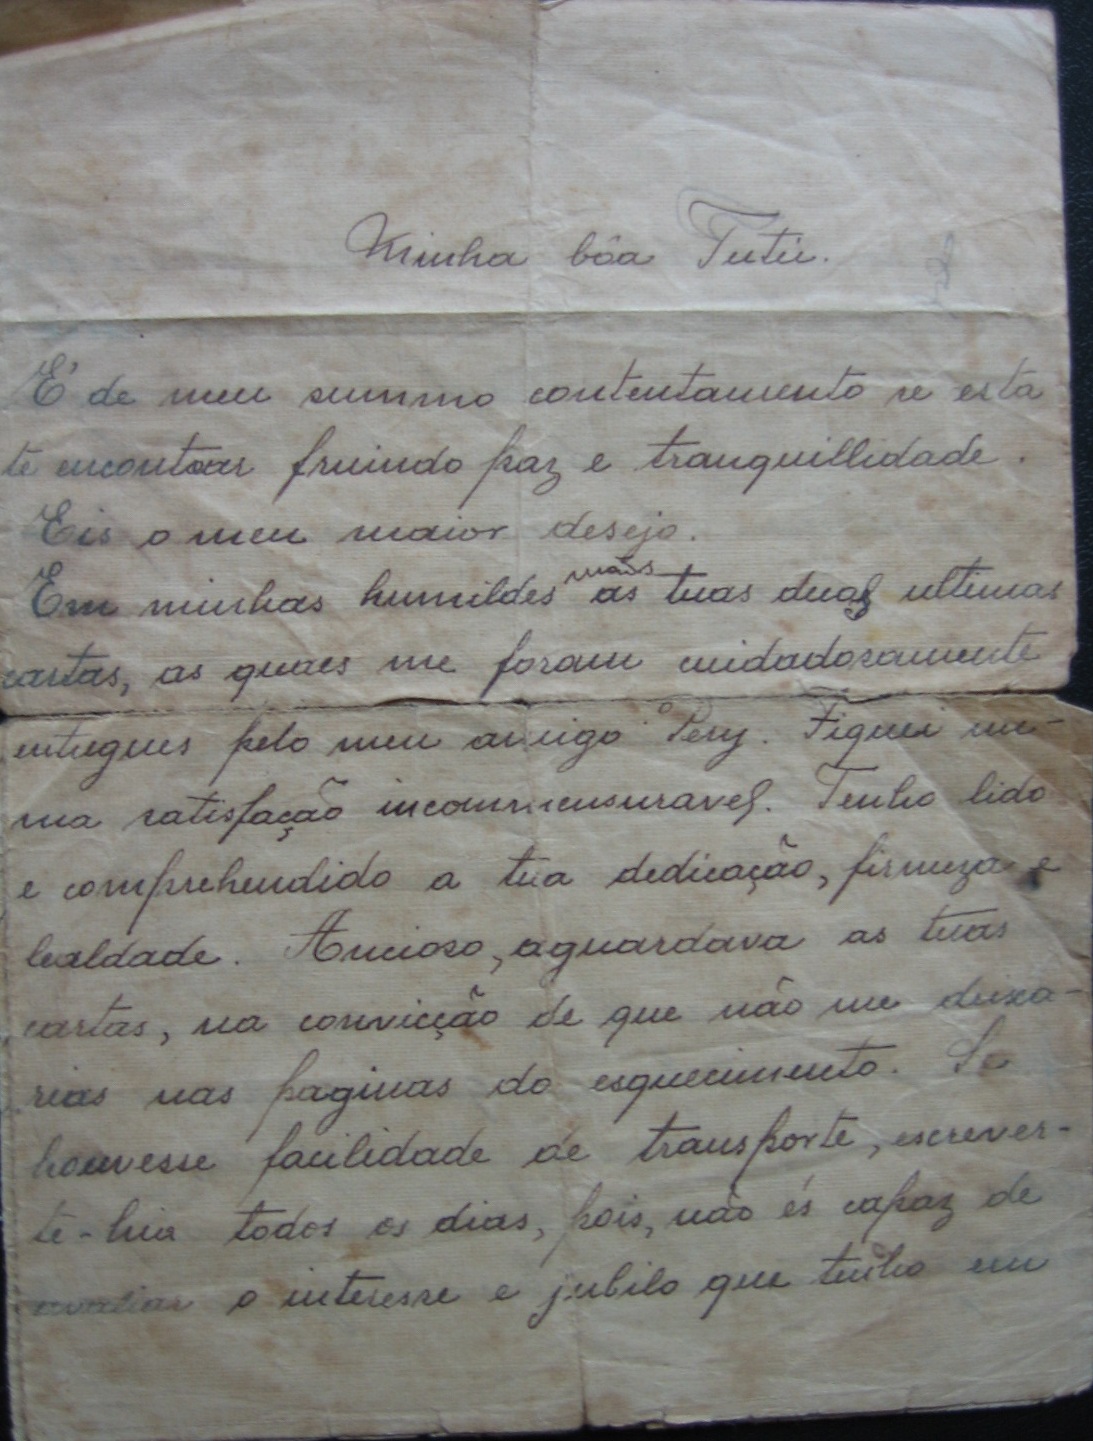 Minha bôa Tutú.
É de meu summo contentamento se esta
te encontrar fruindo paz e tranquillidade.
Eis o meu maior desejo.
Em minhas humildes mãos as tuas duas ultimas
cartas, as quaes me foram cuidadosamente
entregues pelo meu amigo Pery. Fiquei nu-
ma satisfação incommensuravel. Tenho lido
e comprehendido a tua dedicação, firmeza e
lealdade. Ancioso, aguardava as tuas
cartas, na convicção de que não me deixa-
rias nas paginas do esquecimento. Se
houvesse facilidade de transporte, escrever-
te-hia todos os dias, pois, não és capaz de
avaliar o interesse e jubilo que tenho em